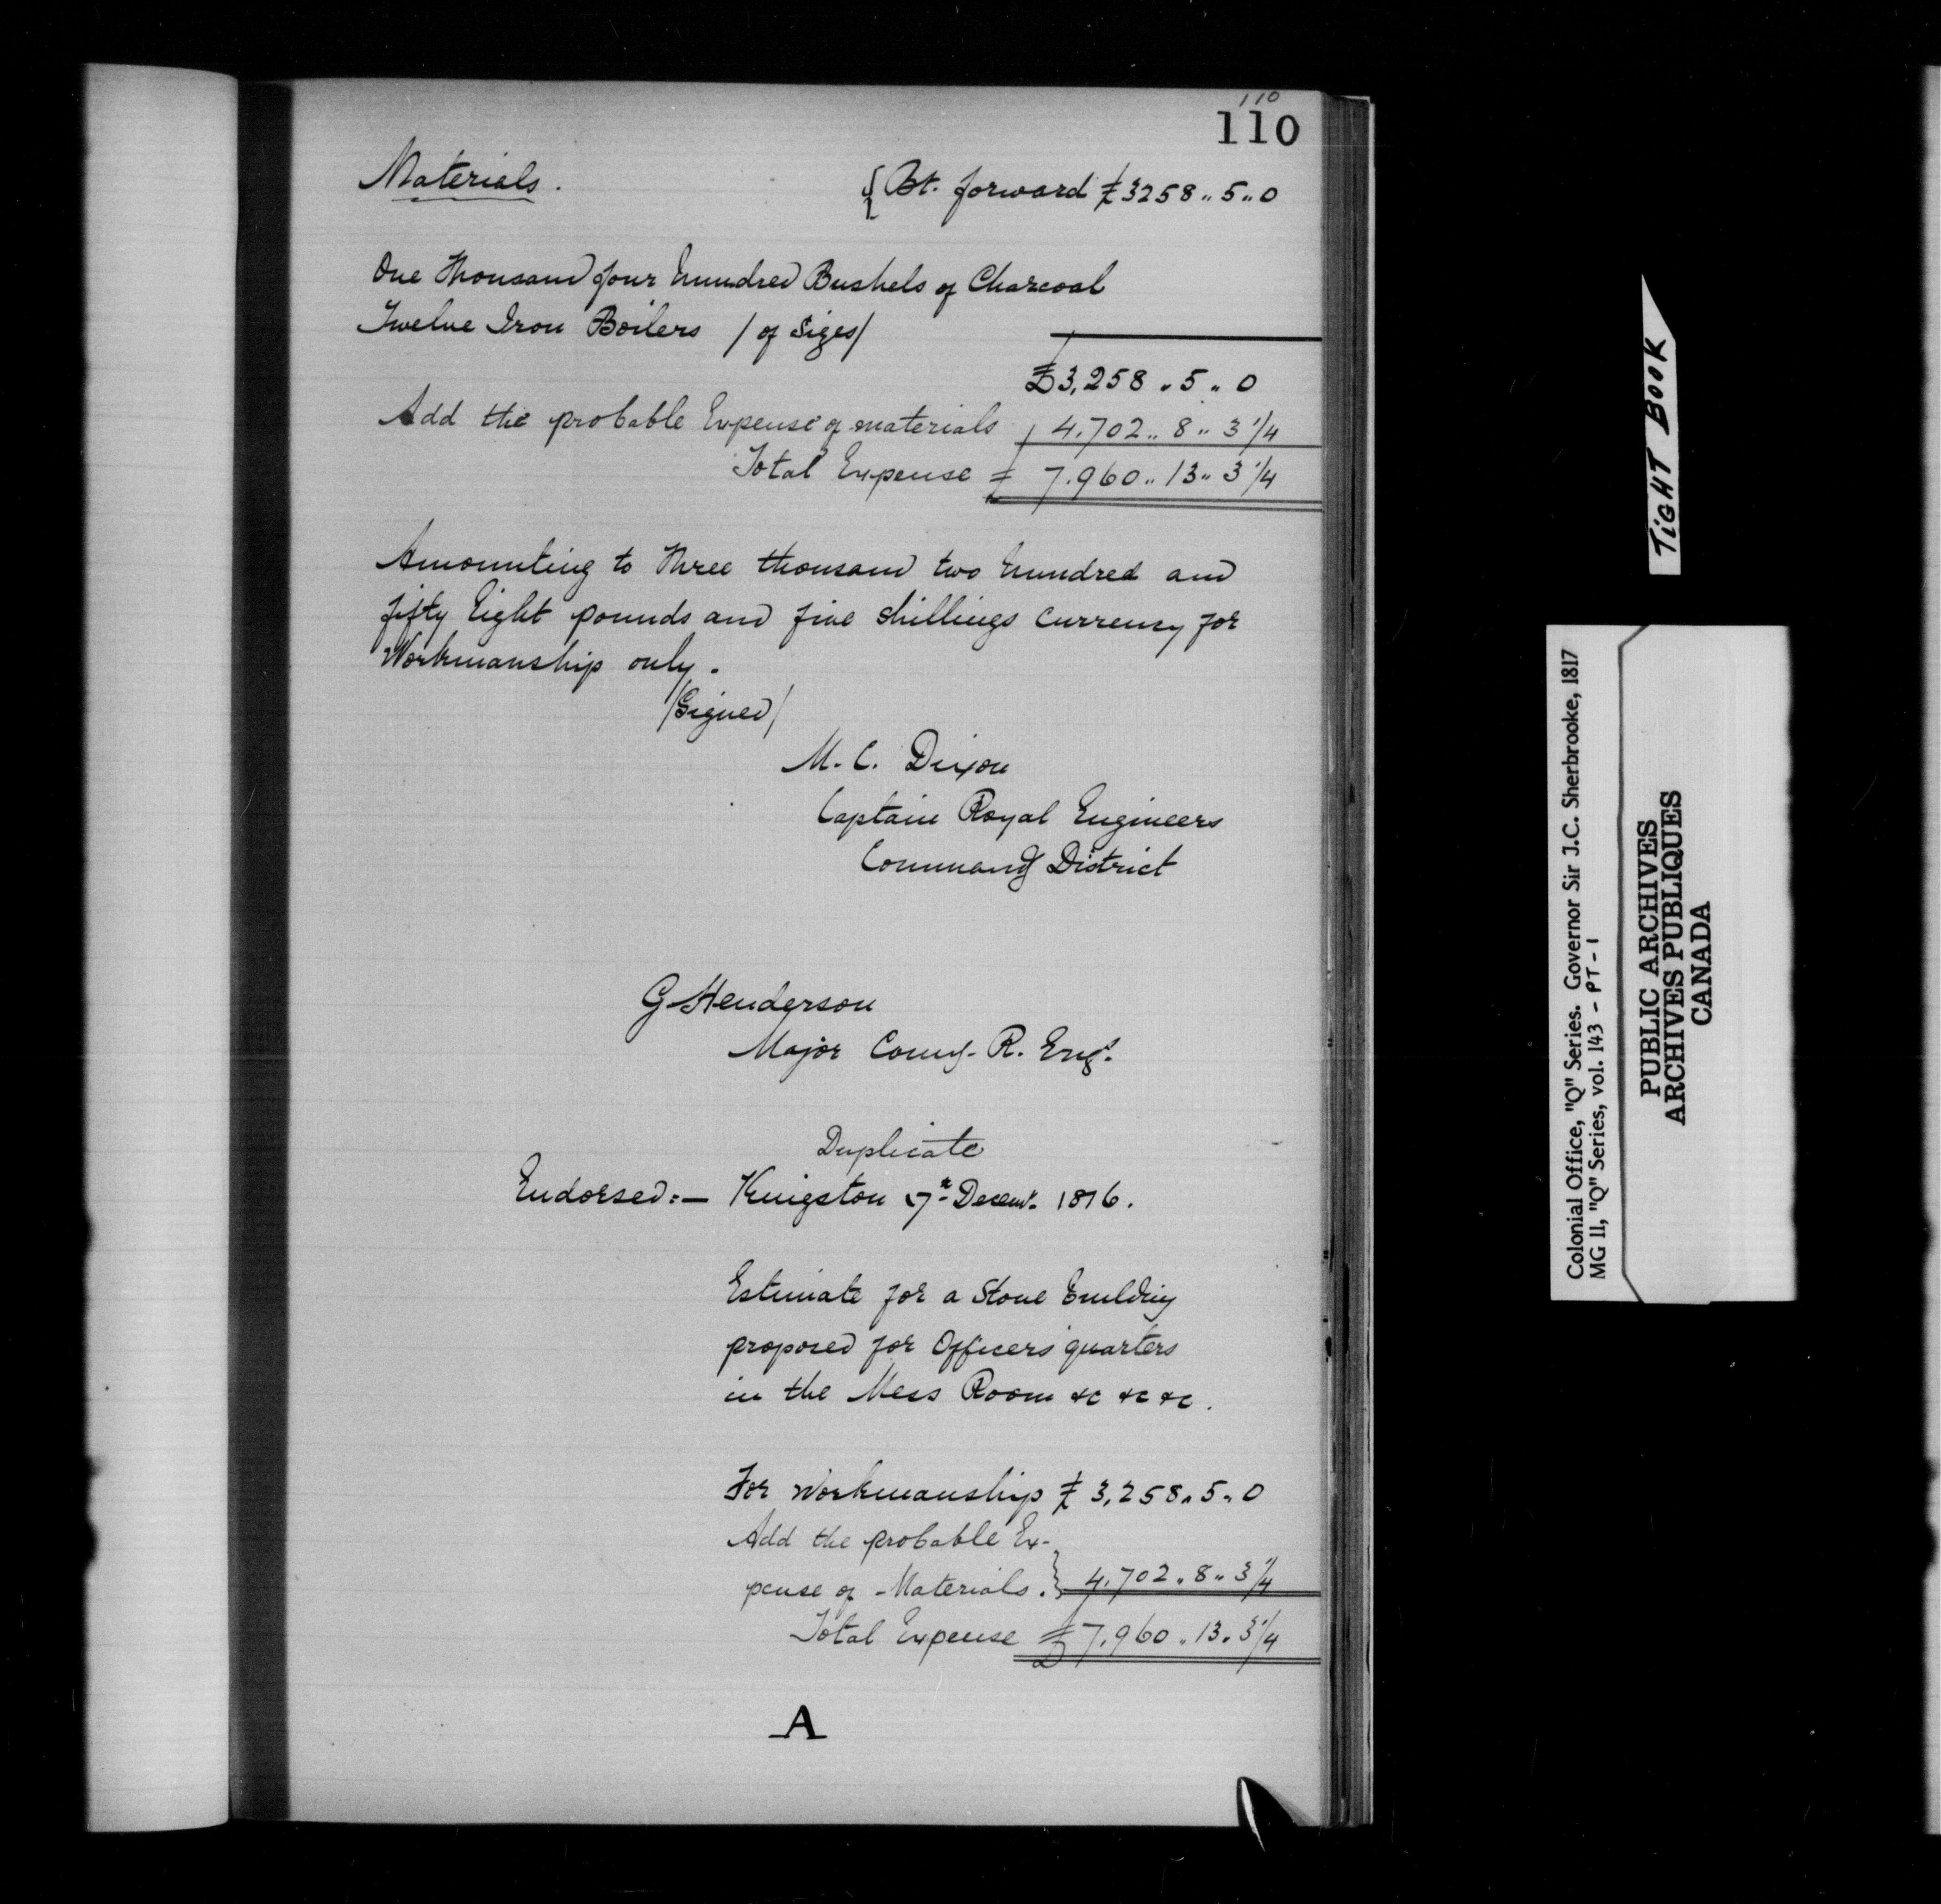 110
110
Materials.
{Bt. forward £3258 „ 5 „ 0
One thousand four hundred Bushels of Charcoal
Twelve Iron Boilers / of Sizes/
£3,258 „ 5 „ 0
Add the probable Expense of materials 4.702 „ 8 „ 3 1/4
Total Expense £ 7.960 „ 13 „ 3 1/4
Amounting to three thousand two hundred and
fifty Eight pounds and five shillings Currency for
Workmanship only.
/Signed/
M. C. Dixon
Captain Royal Engineers
Commandg District
G Henderson
Major Comg. R. Engs.
Duplicate
Endorsed:— Kingston 7th Decemr. 1816.
Estimate for a Stone building
proposed for Officers quarters
in the Mess Room &c &c &c.
For Workmanship £ 3,258 „ 5 „ 0
Add the probable Ex-
pense of Materials.} 4.702 „ 8 „ 3 1/4
Total Expense £7.960 „ 13 „ 3 1/4
A
TIGHT BOOK
Colonial Office, "Q" Series. Governor Sir J.C. Sherbrooke, 1817
MG 11, "Q" Series, vol. 143 - PT - 1
PUBLIC ARCHIVES
ARCHIVES PUBLIQUES
CANADA